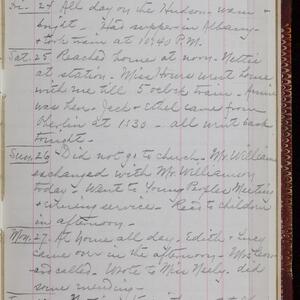 Fri. 24 All day on the Hudson - warm &
Had supper in Albany -
& took train at 10:40 P.M.
Sat. 25 Reached home at noon - Nettie
at station - Miss went home
with me till 5 o'clock train - Annie
was here - Jack & Ethel came from
Berlin at 11:30 - all went back
tonight -
Sun. 26 - Did not go to church - Mr. William
exchanged with Mr. Williamson
today - Went to Young Peoples Meeting
& evening service - Read to children
in afternoon -
Mon. 27. At home all day - Edith & Lucy
came over in the afternoon - Mrs.
called. Wrote to Miss Neely. did
some mending -